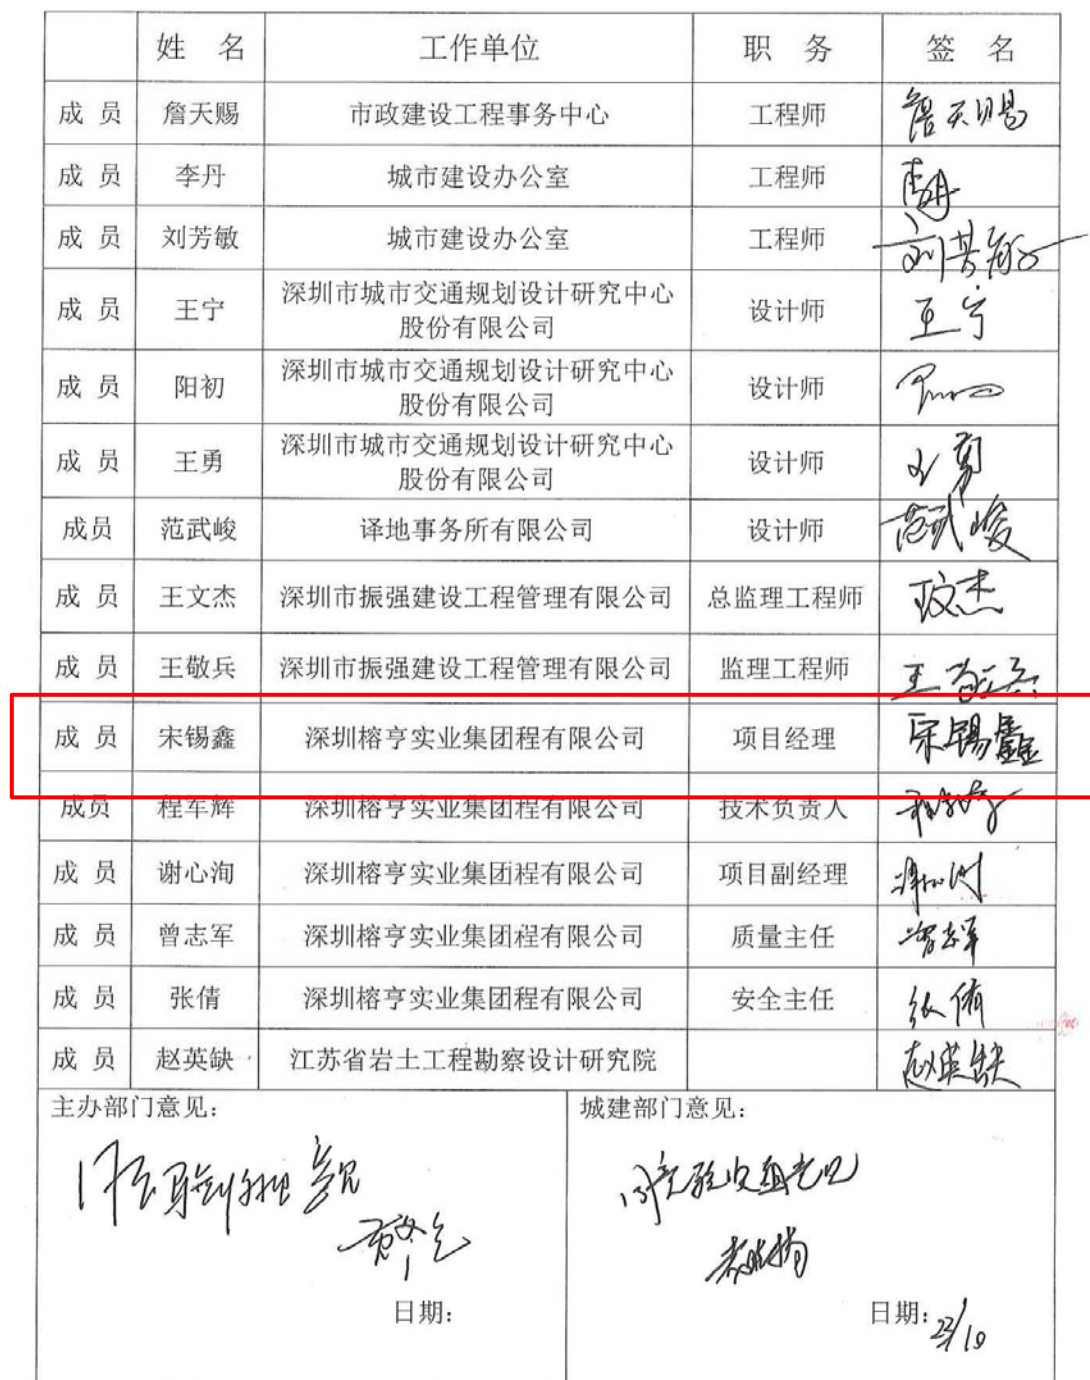 姓 名 工作单位 职 务 签 名
成 员 詹天赐 市政建设工程事务中心 工程师 詹天赐
成 员 李丹 城市建设办公室 工程师 李丹
成 员 刘芳敏 城市建设办公室 工程师 刘芳敏
成 员 王宁 深圳市城市交通规划设计研究中心
股份有限公司 设计师 王宁
成 员 阳初 深圳市城市交通规划设计研究中心
股份有限公司 设计师
成 员 王勇 深圳市城市交通规划设计研究中心
股份有限公司 设计师 王勇
成员 范武峻 译地事务所有限公司 设计师 范武峻
成 员 王文杰 深圳市振强建设工程管理有限公司 总监理工程师 王文杰
成 员 王敬兵 深圳市振强建设工程管理有限公司 监理工程师 王敬兵
成 员 宋锡鑫 深圳榕亨实业集团程有限公司 项目经理 宋锡鑫
成员 程军辉 深圳榕亨实业集团程有限公司 技术负责人
成 员 谢心洵 深圳榕亨实业集团程有限公司 项目副经理 谢心洵
成 员 曾志军 深圳榕亨实业集团程有限公司 质量主任 曾志军
成 员 张倩 深圳榕亨实业集团程有限公司 安全主任 张倩
成 员 赵英缺 江苏省岩土工程勘察设计研究院 赵英缺
主办部门意见： 城建部门意见：
同意验收组意见
日期： 日期：23/10